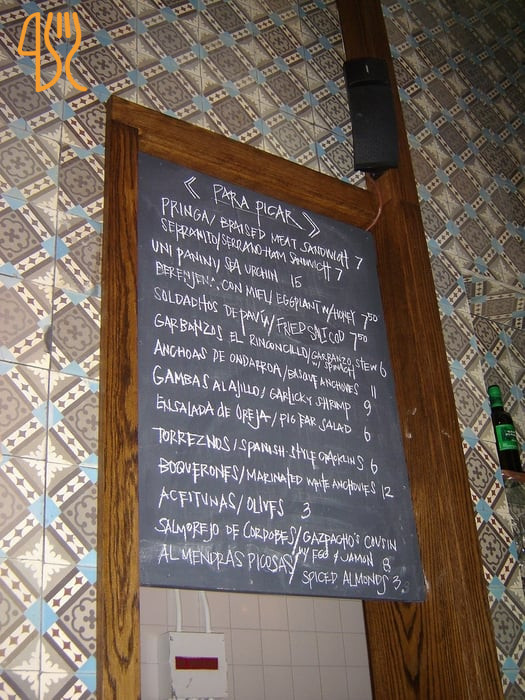 < PARA PICAR >
PRINGA/ BRAISED MEAT SANDWICH 7
SERRANITO/SERRANO HAM SANDWICH 7
UNI PANINI/ SEA URCHIN 15
CON MIEL/ EGGPLANT W/HONEY 7.50
SOLDADITOS DE PAVIA/ FRIED SALT COD 7.50
GARBANZOS EL RINCONCILLO/GARBANZO STEW 6
W/ SPINACH
ANCHOAS DE ONDARROA/BASQUE ANCHOVIES 11
GAMBAS AL AJILLO/ GARLICKY SHRIMP 9
ENSALADA DE OREJA/ PIG EAR SALAD 6
TORREZNOS/SPANISH-STYLE CRACKLINS 6
BOQUERONES/MARINATED WHITE ANCHOVIES 12
ACEITUNAS/OLIVES 3
SALMOREJO DE CORDOBES/GAZPACHO'S COUSIN
W/ EGG + JAMON 8
ALMENDRAS PICOSAS/ SPICED ALMONDS 3